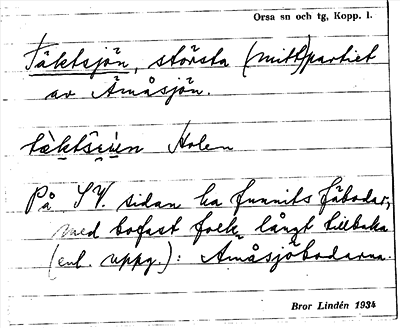 Orsa sn och tg, Kopp. l.
Täktsjön, största (mitt)partiet
av Åmåsjön.
Holen
På SV. sidan ha funnits fäbodar,
med bofast folk långt tillbaka
(enl. uppg.): Åmåsjöbodarna.
Bror Lindén 1934